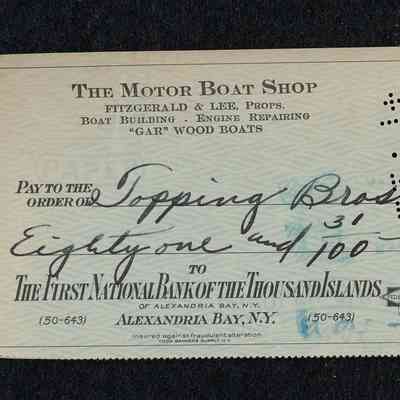 THE MOTOR BOAT SHOP
FITZGERALD & LEE, PROPS.
BOAT BUILDING - ENGINE REPAIRING
"GAR" WOOD BOATS
PAY TO THE
ORDER OF Topping Bros
Eighty one and 31/100
TO
THE FIRST NATIONAL BANK OF THE THOUSAND ISLANDS
OF ALEXANDRIA BAY, N.Y.
(50-643) ALEXANDRIA BAY, N.Y. (50-643)
Insured against fraudulent alteration